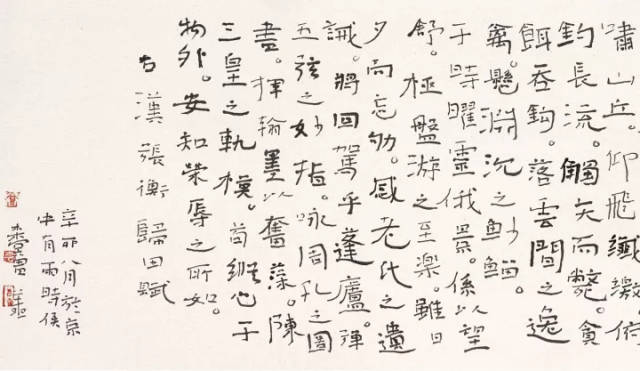 嘯山丘。仰飛纖繳。俯
釣長流。觸矢而斃。貪
餌吞鉤。落雲間之逸
禽。懸淵沉之魦鰡。
于時曜靈俄景。係以望
舒。極盤游之至樂。雖日
夕而忘劬。感老氏之遺
誡。將回駕乎蓬廬。彈
五弦之妙指。咏周孔之圖
書。揮翰墨以奮藻。陳
三皇之軌模。苟縱心于
物外。安知榮辱之所如。
右漢張衡歸田賦
辛卯八月於京
中有雨時侯